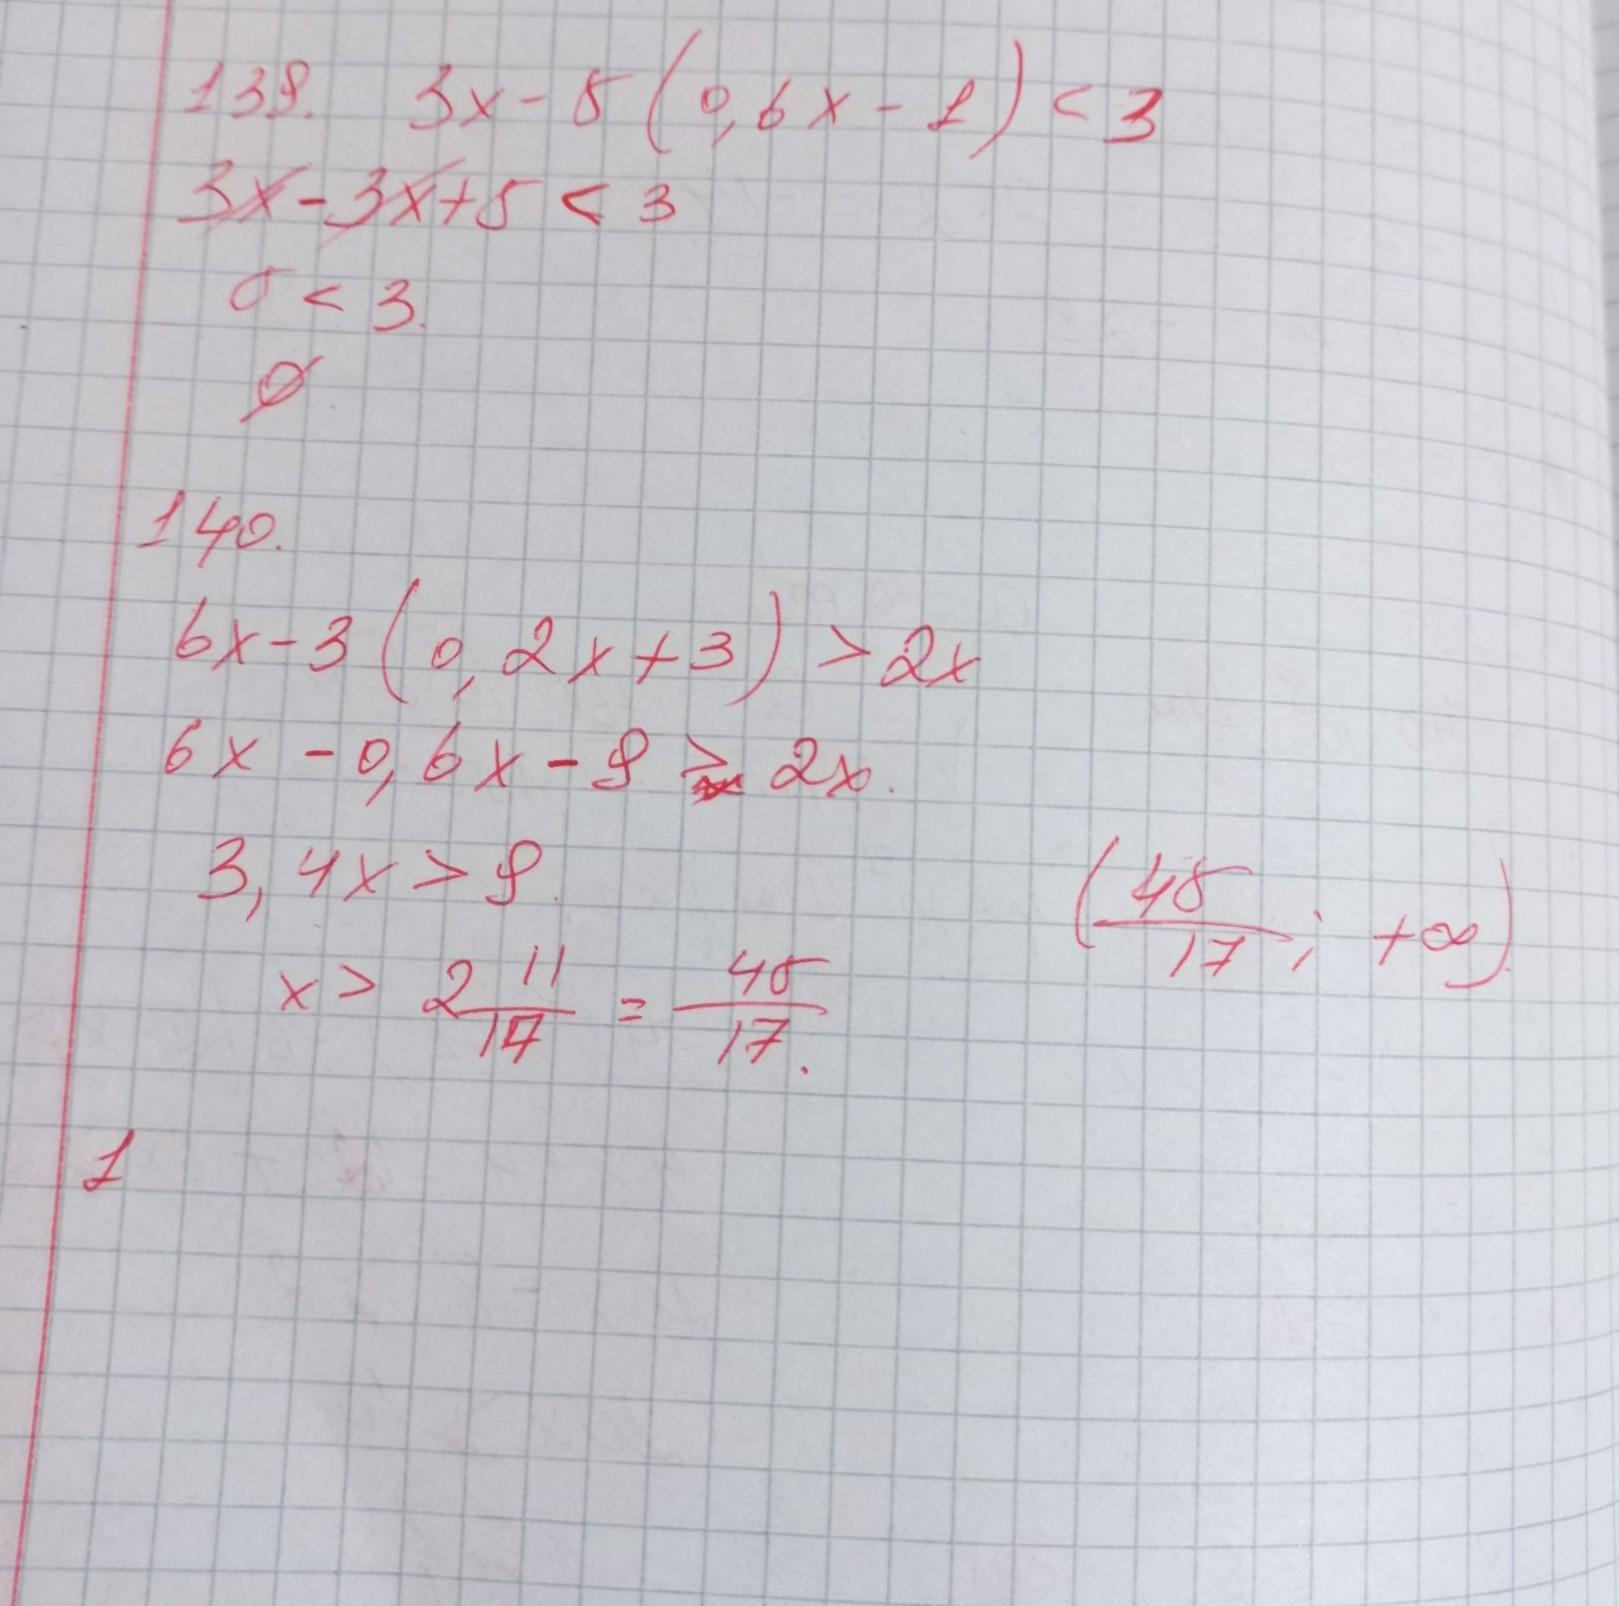 139. 3x-5(0,6x-1)<3
3x-3x+5<3
5<3.
∅
140.
6x-3(0,2x+3)>2x
6x-0,6x-9>2x.
3,4x>9.
x>2 11/17 = 45/17.
(45/17; +∞)
1